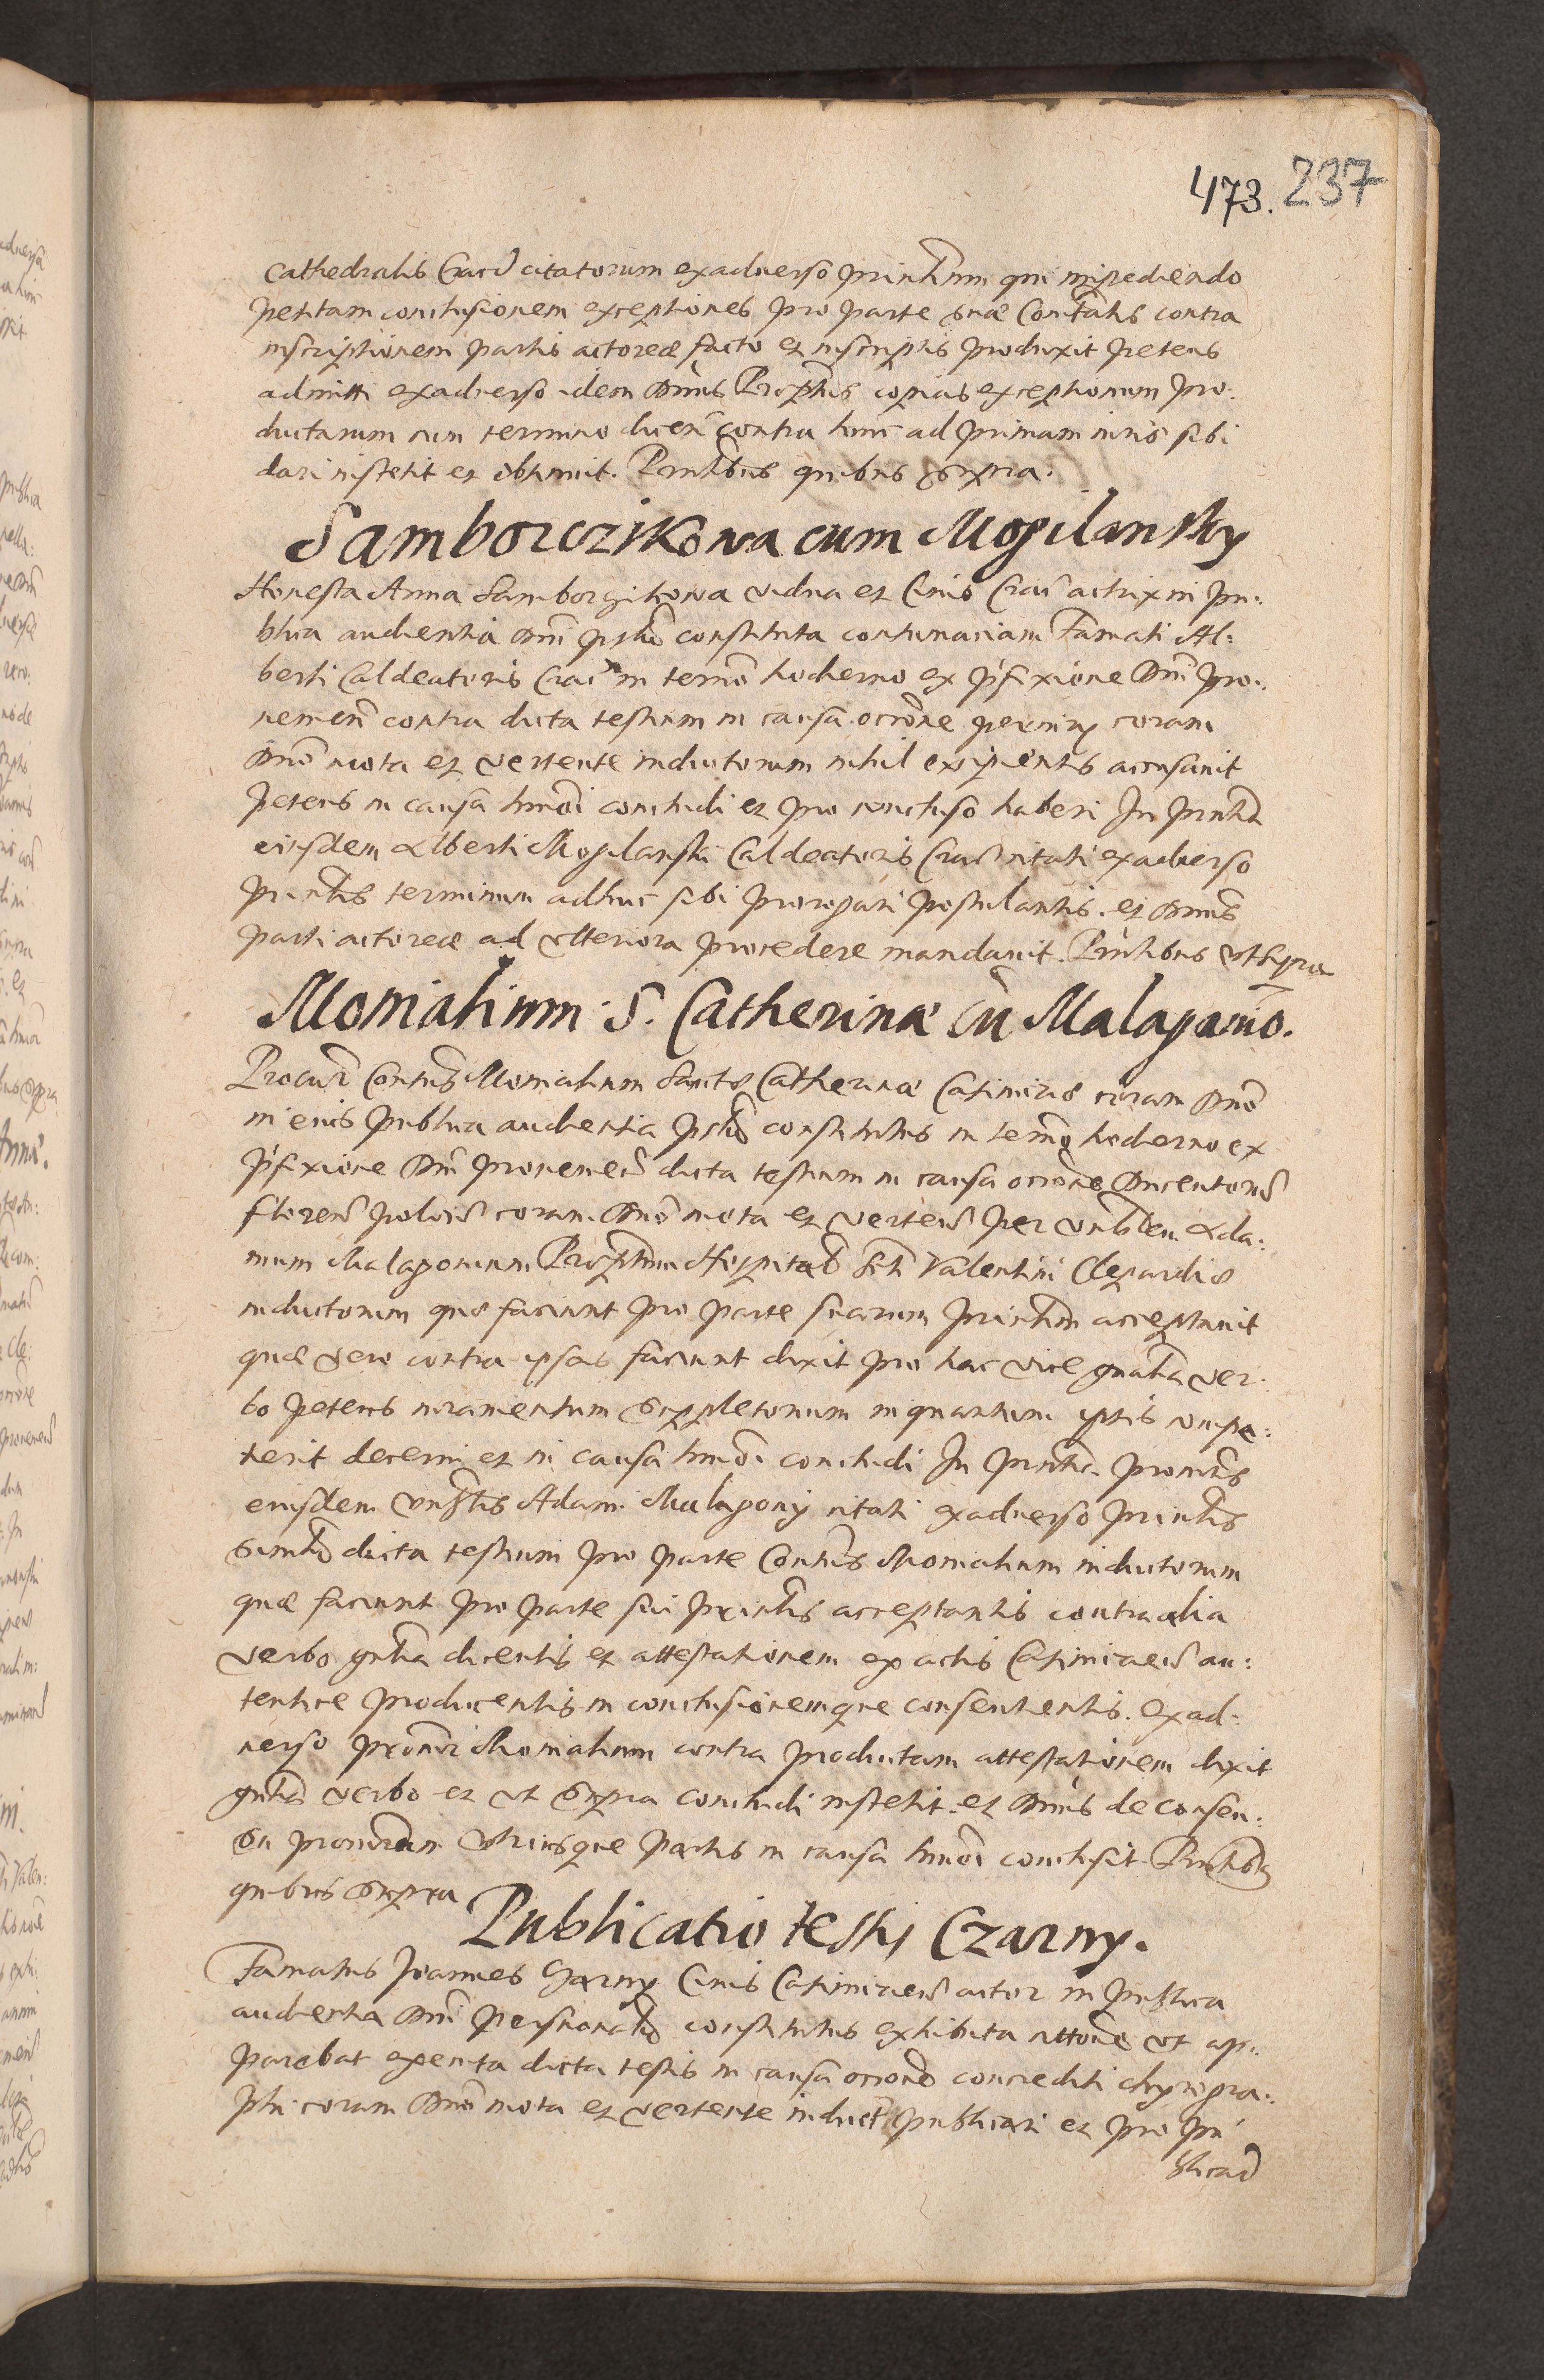 473. 237
Cathedralis Crac citatorum exadverso princtium qui impediendo
petitam conclusionem exceptiones pro parte suae Contatis contra
inscriptionem partis actoreae facto et inscriptis produxit petens
admitti exadverso idem Dnus Praeptus copias exceptionum pro:
ductarum cum termino dicen contra hinc ad primam iuris sibi
dari institit et obtinuit. Pntibus quibus supra.
Samborczikowa cum Mogilansky
Honesta Anna Samborczikowa vidua et Civis Crac actrix in pu:
blica audientia Dni pstlr constituta contumaciam Famati Al:
berti Caldeatoris Crac in termo hodierno ex pfixione Dni pro:
venien contra dicta testium in causa occne pecuniar coram
Dno mota et vertente inductorum nihil excipientis accusavit
petens in causa hmoi concludi et pro concluso haberi In pntia
eiusdem Alberti Mogilanski Caldeatoris Crac citati exadverso
princtis terminum adhuc sibi prorogari postulantis. et Dnus
parti actoreae ad ulteriora procedere mandavit. Pntibus ut supra
Monialium S. Catherinae cum Malagonio.
Procur Contus Monialium Sanctae Catherinae Casimiriae coram Dno
in eius publica audientia pstlr constitutus in termo hodierno ex
pfixione Dni provenien dicta testium in causa occne
floren polon coram Dno mota et verten per venblem Ada:
mum Malagonium Praeptum Hospital Scti Valentini Clepardiae
inductorum quae faciunt pro parte suarum princlium acceptavit
quae vero contra ipsas faciunt dixit pro hac vice gnalia ver:
bo petens iuramentum suppletorium inquantum ipsis compe:
terit decerni et in causa hmoi concludi In pntia procutoris
eiusdem venblis Adami Malagonij citati exadverso princtis
similr dicta testium pro parte Contus Monialium inductorum
quae faciunt pro parte sui princlis acceptantis contra alia
verbo gnlia dicentis et attestationem ex actis Casimirien au:
tentice producentis in conclusionemque consentientis. Exad:
verso procutor Monialium contra productam attestationem dixit
gnlia verbo et ut supra concludi institit. et Dnus de consen:
su procutorum utriusque partis in causa hmoi conclusit. Pntibus
quibus supra
Publicatio testis Czarny.
Famatus Joannes Czarny Civis Casimirien actor in publica
audientia Dni personalr constitutus exhibita cittone ut ap:
parebat executa dicta testis in causa occone concrediti chyrogra:
phi coram Dno mota et vertente induct publicari et pro pu
blicat